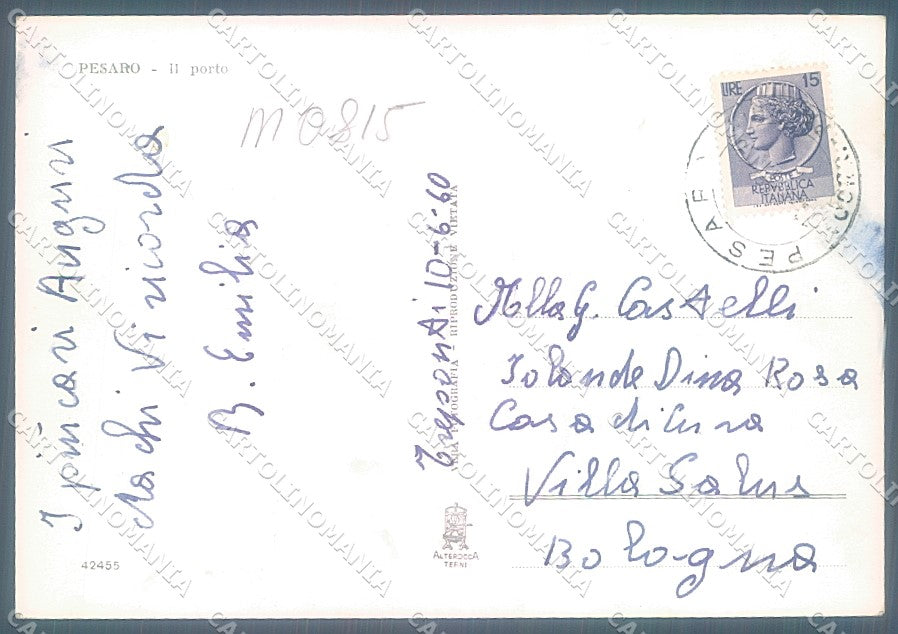 PESARO - Il porto
m0815
I più cari Auguri
da chi Vi ricorda
B. Emilia
Treponti 10-6-60
VERA FOTOGRAFIA - RIPRODUZIONE VIETATA
LIRE 15
POSTE
REPVBBLICA
ITALIANA
PESAR
Castelli
Iolanda Dina Rosa
Casa di Cura
Villa Salus
Bologna
ALTEROCCA
TERNI
42455
CARTOLINOMANIA